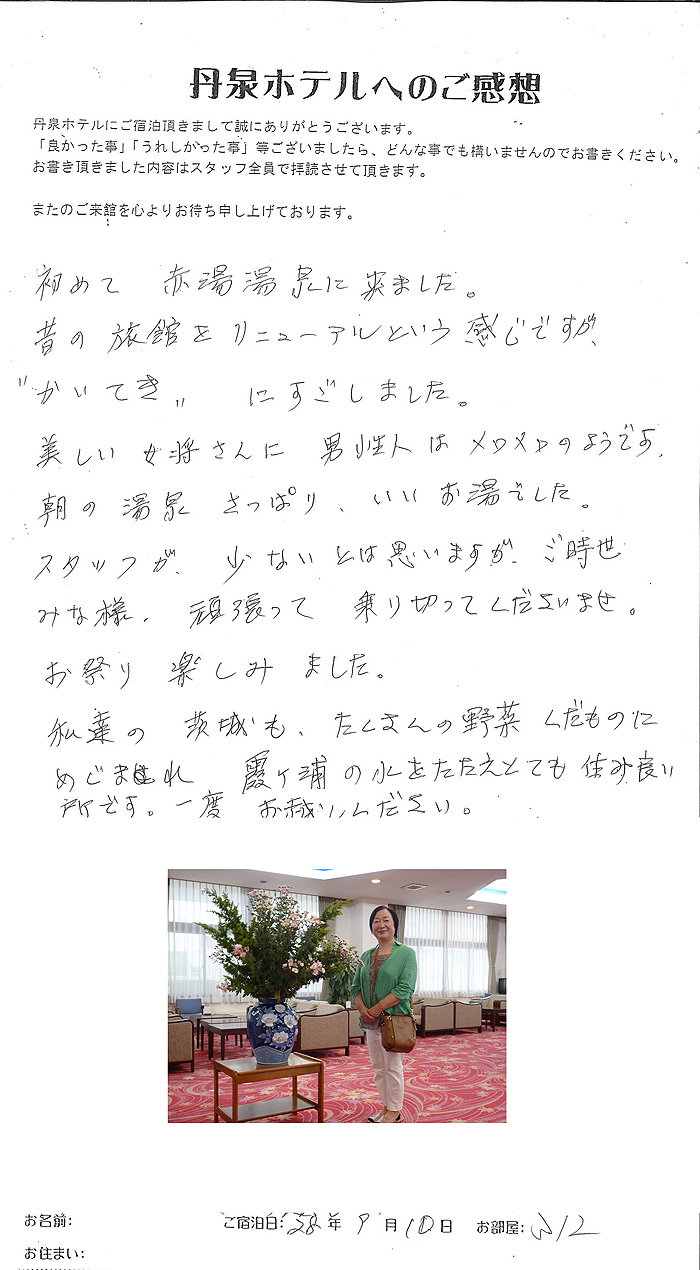 丹泉ホテルへのご感想
丹泉ホテルにご宿泊頂きまして誠にありがとうございます。
「良かった事」「うれしかった事」等ございましたら、どんな事でも構いませんのでお書きください。
お書き頂きました内容はスタッフ全員で拝読させて頂きます。
またのご来館を心よりお待ち申し上げております。
初めて 赤湯温泉に来ました。
昔の旅館をリニューアルという感じですが、
"かいてき" にすごしました。
美しい女将さんに 男性人はメロメロのようです。
朝の温泉 さっぱり、いいお湯でした。
スタッフが、少ないとは思いますが、ご時世
みな様、頑張って 乗り切ってくださいませ。
お祭り 楽しみ ました。
私達の 茨城も、たくさんの野菜 くだものに
めぐまれ 霞ヶ浦の水をたたえとても住み良い
所です。一度 お越しください。
お名前:
ご宿泊日: 28年 9月10日 お部屋: 512
お住まい: